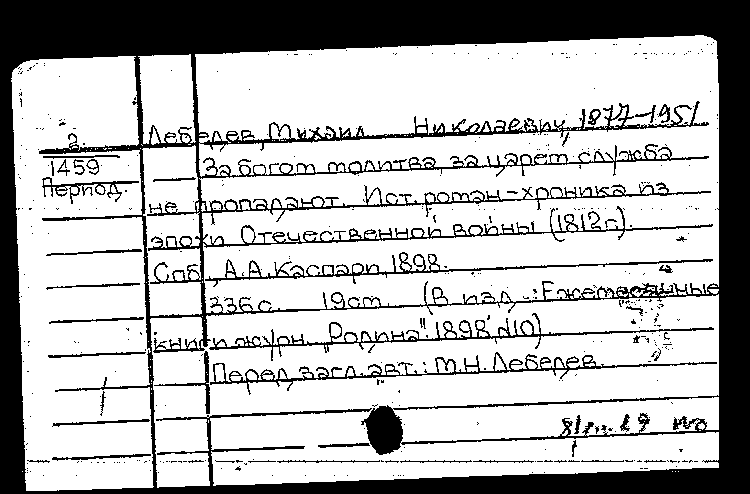 Лебедев, Михаил Николаевич, 1877-1951
2.
1459
Период.
За богом молитва, за царем служба
не пропадают. Ист. роман-хроника из
эпохи Отечественной войны (1812г.).
Спб., А.А.Каспари, 1898.
336с. 19см. (В изд.: Ежемесячные
книги журн. „Родина". 1898, №10).
Перед загл. авт.: М.Н.Лебедев.